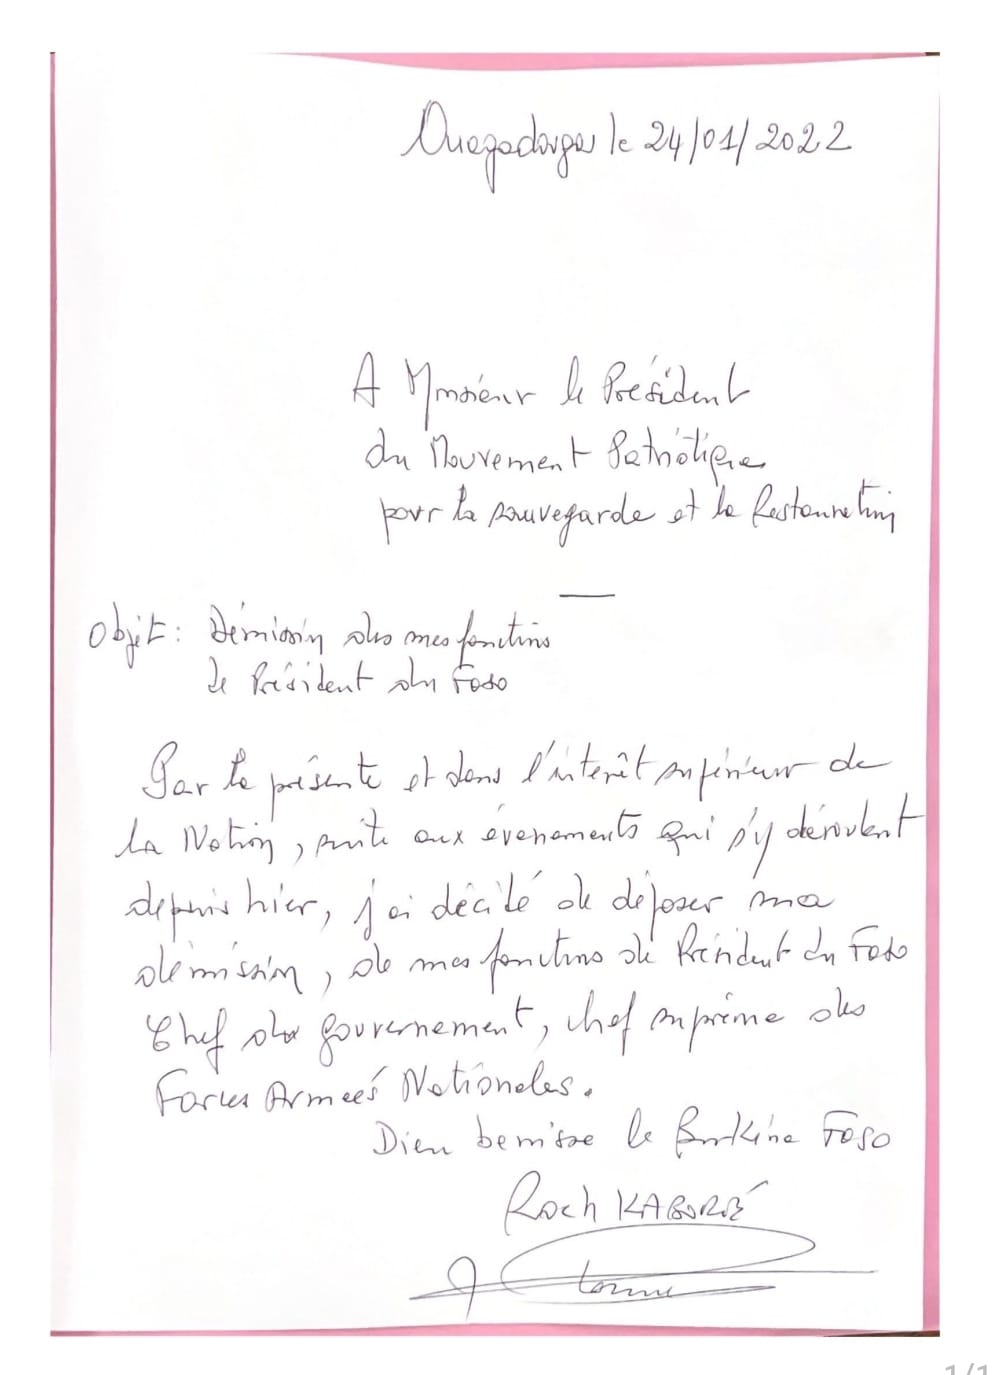 Ouagadougou le 24/01/2022
A Monsieur le Président
du Mouvement Patriotique
pour la sauvegarde et la Restauration
Objet: Démission de mes fonctions
de Président du Faso
Par la présente et dans l'intérêt supérieur de
la Nation, suite aux évenements qui s'y déroulent
depuis hier, j'ai décidé de déposer ma
démission, de mes fonctions de Président du Faso
Chef du gouvernement, chef suprême des
Forces Armées Nationales.
Dieu benisse le Burkina Faso
Roch KABORÉ
1/1